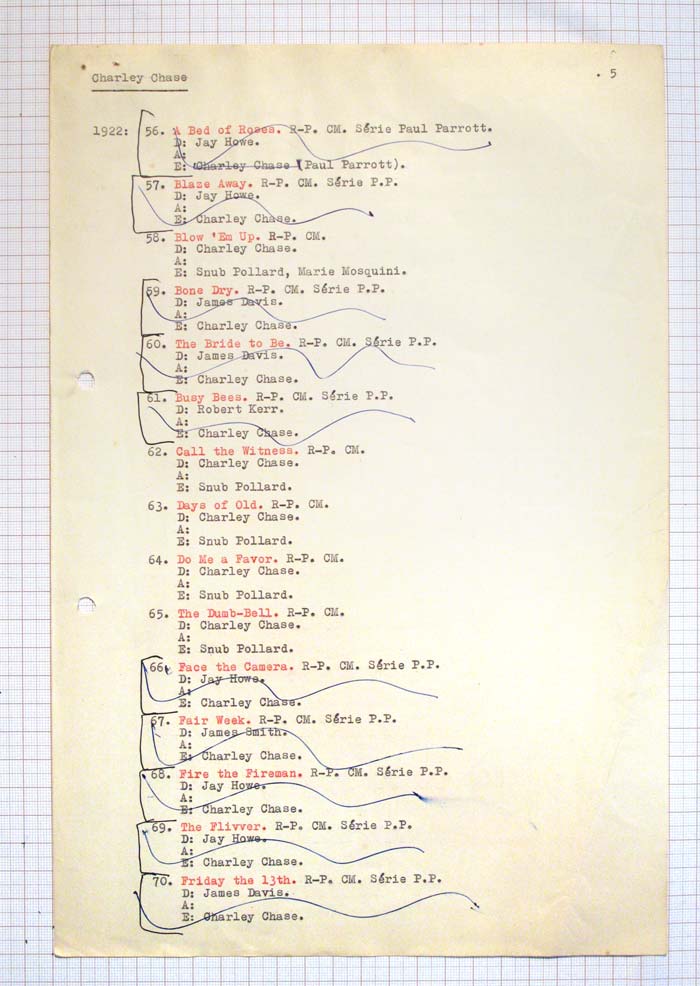 Charley Chase
. 5
1922: 56. A Bed of Roses. R-P. CM. Série Paul Parrott.
D: Jay Howe.
A:
E: Charley Chase (Paul Parrott).
57. Blaze Away. R-P. CM. Série P.P.
D: Jay Howe.
A:
E: Charley Chase.
58. Blow 'Em Up. R-P. CM.
D: Charley Chase.
A:
E: Snub Pollard, Marie Mosquini.
59. Bone Dry. R-P. CM. Série P.P.
D: James Davis.
A:
E: Charley Chase.
60. The Bride to Be. R-P. CM. Série P.P.
D: James Davis.
A:
E: Charley Chase.
61. Busy Bees. R-P. CM. Série P.P.
D: Robert Kerr.
A:
E: Charley Chase.
62. Call the Witness. R-P. CM.
D: Charley Chase.
A:
E: Snub Pollard.
63. Days of Old. R-P. CM.
D: Charley Chase.
A:
E: Snub Pollard.
64. Do Me a Favor. R-P. CM.
D: Charley Chase.
A:
E: Snub Pollard.
65. The Dumb-Bell. R-P. CM.
D: Charley Chase.
A:
E: Snub Pollard.
66. Face the Camera. R-P. CM. Série P.P.
D: Jay Howe.
A:
E: Charley Chase.
67. Fair Week. R-P. CM. Série P.P.
D: James Smith.
A:
E: Charley Chase.
68. Fire the Fireman. R-P. CM. Série P.P.
D: Jay Howe.
A:
E: Charley Chase.
69. The Flivver. R-P. CM. Série P.P.
D: Jay Howe.
A:
E: Charley Chase.
70. Friday the 13th. R-P. CM. Série P.P.
D: James Davis.
A:
E: Charley Chase.